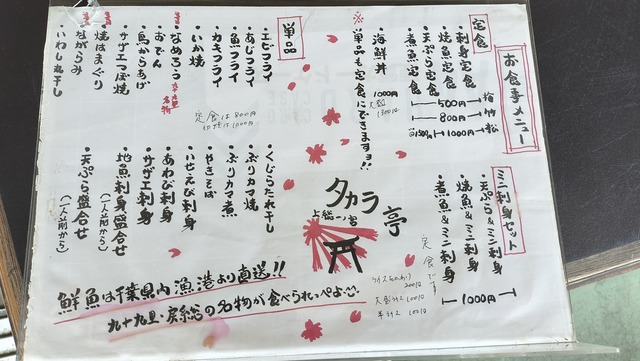 お食事メニュー
定食
梅 竹 松
刺身定食
焼魚定食
天ぷら定食
煮魚定食
500円
800円
1000円
海鮮丼 1000円
大盛
※単品も定食にできますョ!!
ミニ刺身セット
天ぷら&ミニ刺身
焼魚&ミニ刺身
煮魚&ミニ刺身
1000円
定食です
単品
エビフライ
あじフライ
魚フライ
カキフライ
いか焼
おでん
なめろう 九十九里名物
鳥からあげ
サザエつぼ焼
焼はまぐり
ながらみ
いわし丸干し
定食は800円
くじらたれ干し
ぶりカマ焼
ぶりカマ煮
やきそば
いせえび刺身
あわび刺身
サザエ刺身
地魚刺身盛合せ
(一人前から)
天ぷら盛合せ
(一人前から)
タカラ亭
上総一ノ宮
大盛ライス
半ライス
鮮魚は千葉県内漁港より直送!!
九十九里・房総の名物が食べられっぺよ